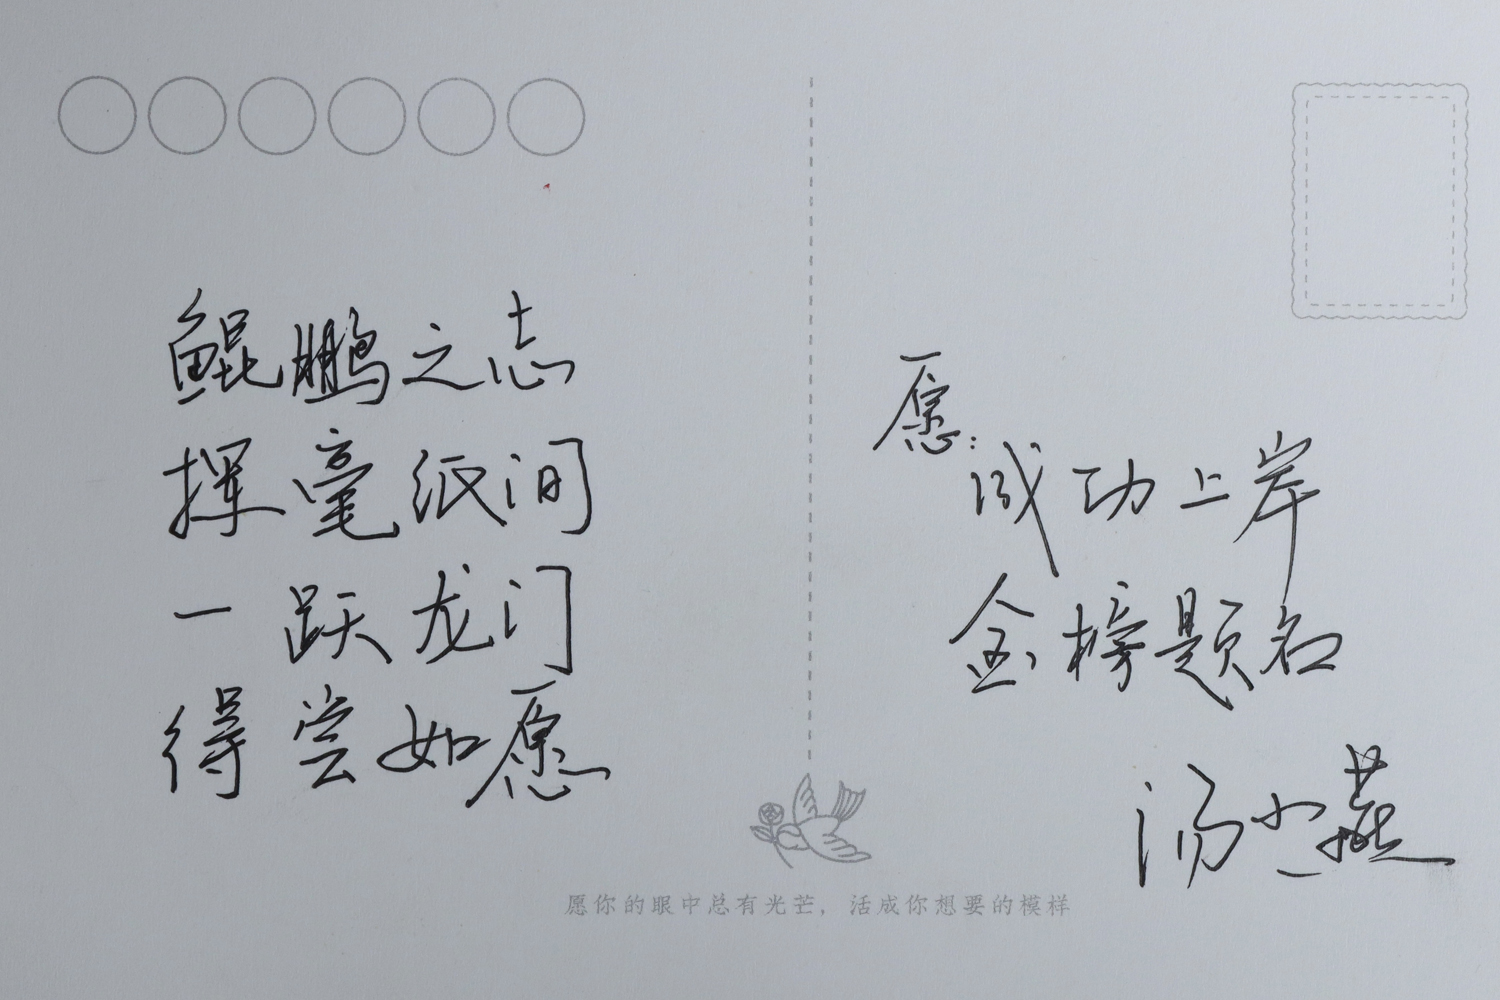 鲲鹏之志
挥毫纸间
一跃龙门
得尝如愿
愿:
成功上岸
金榜题名
汤小燕
愿你的眼中总有光芒，活成你想要的模样